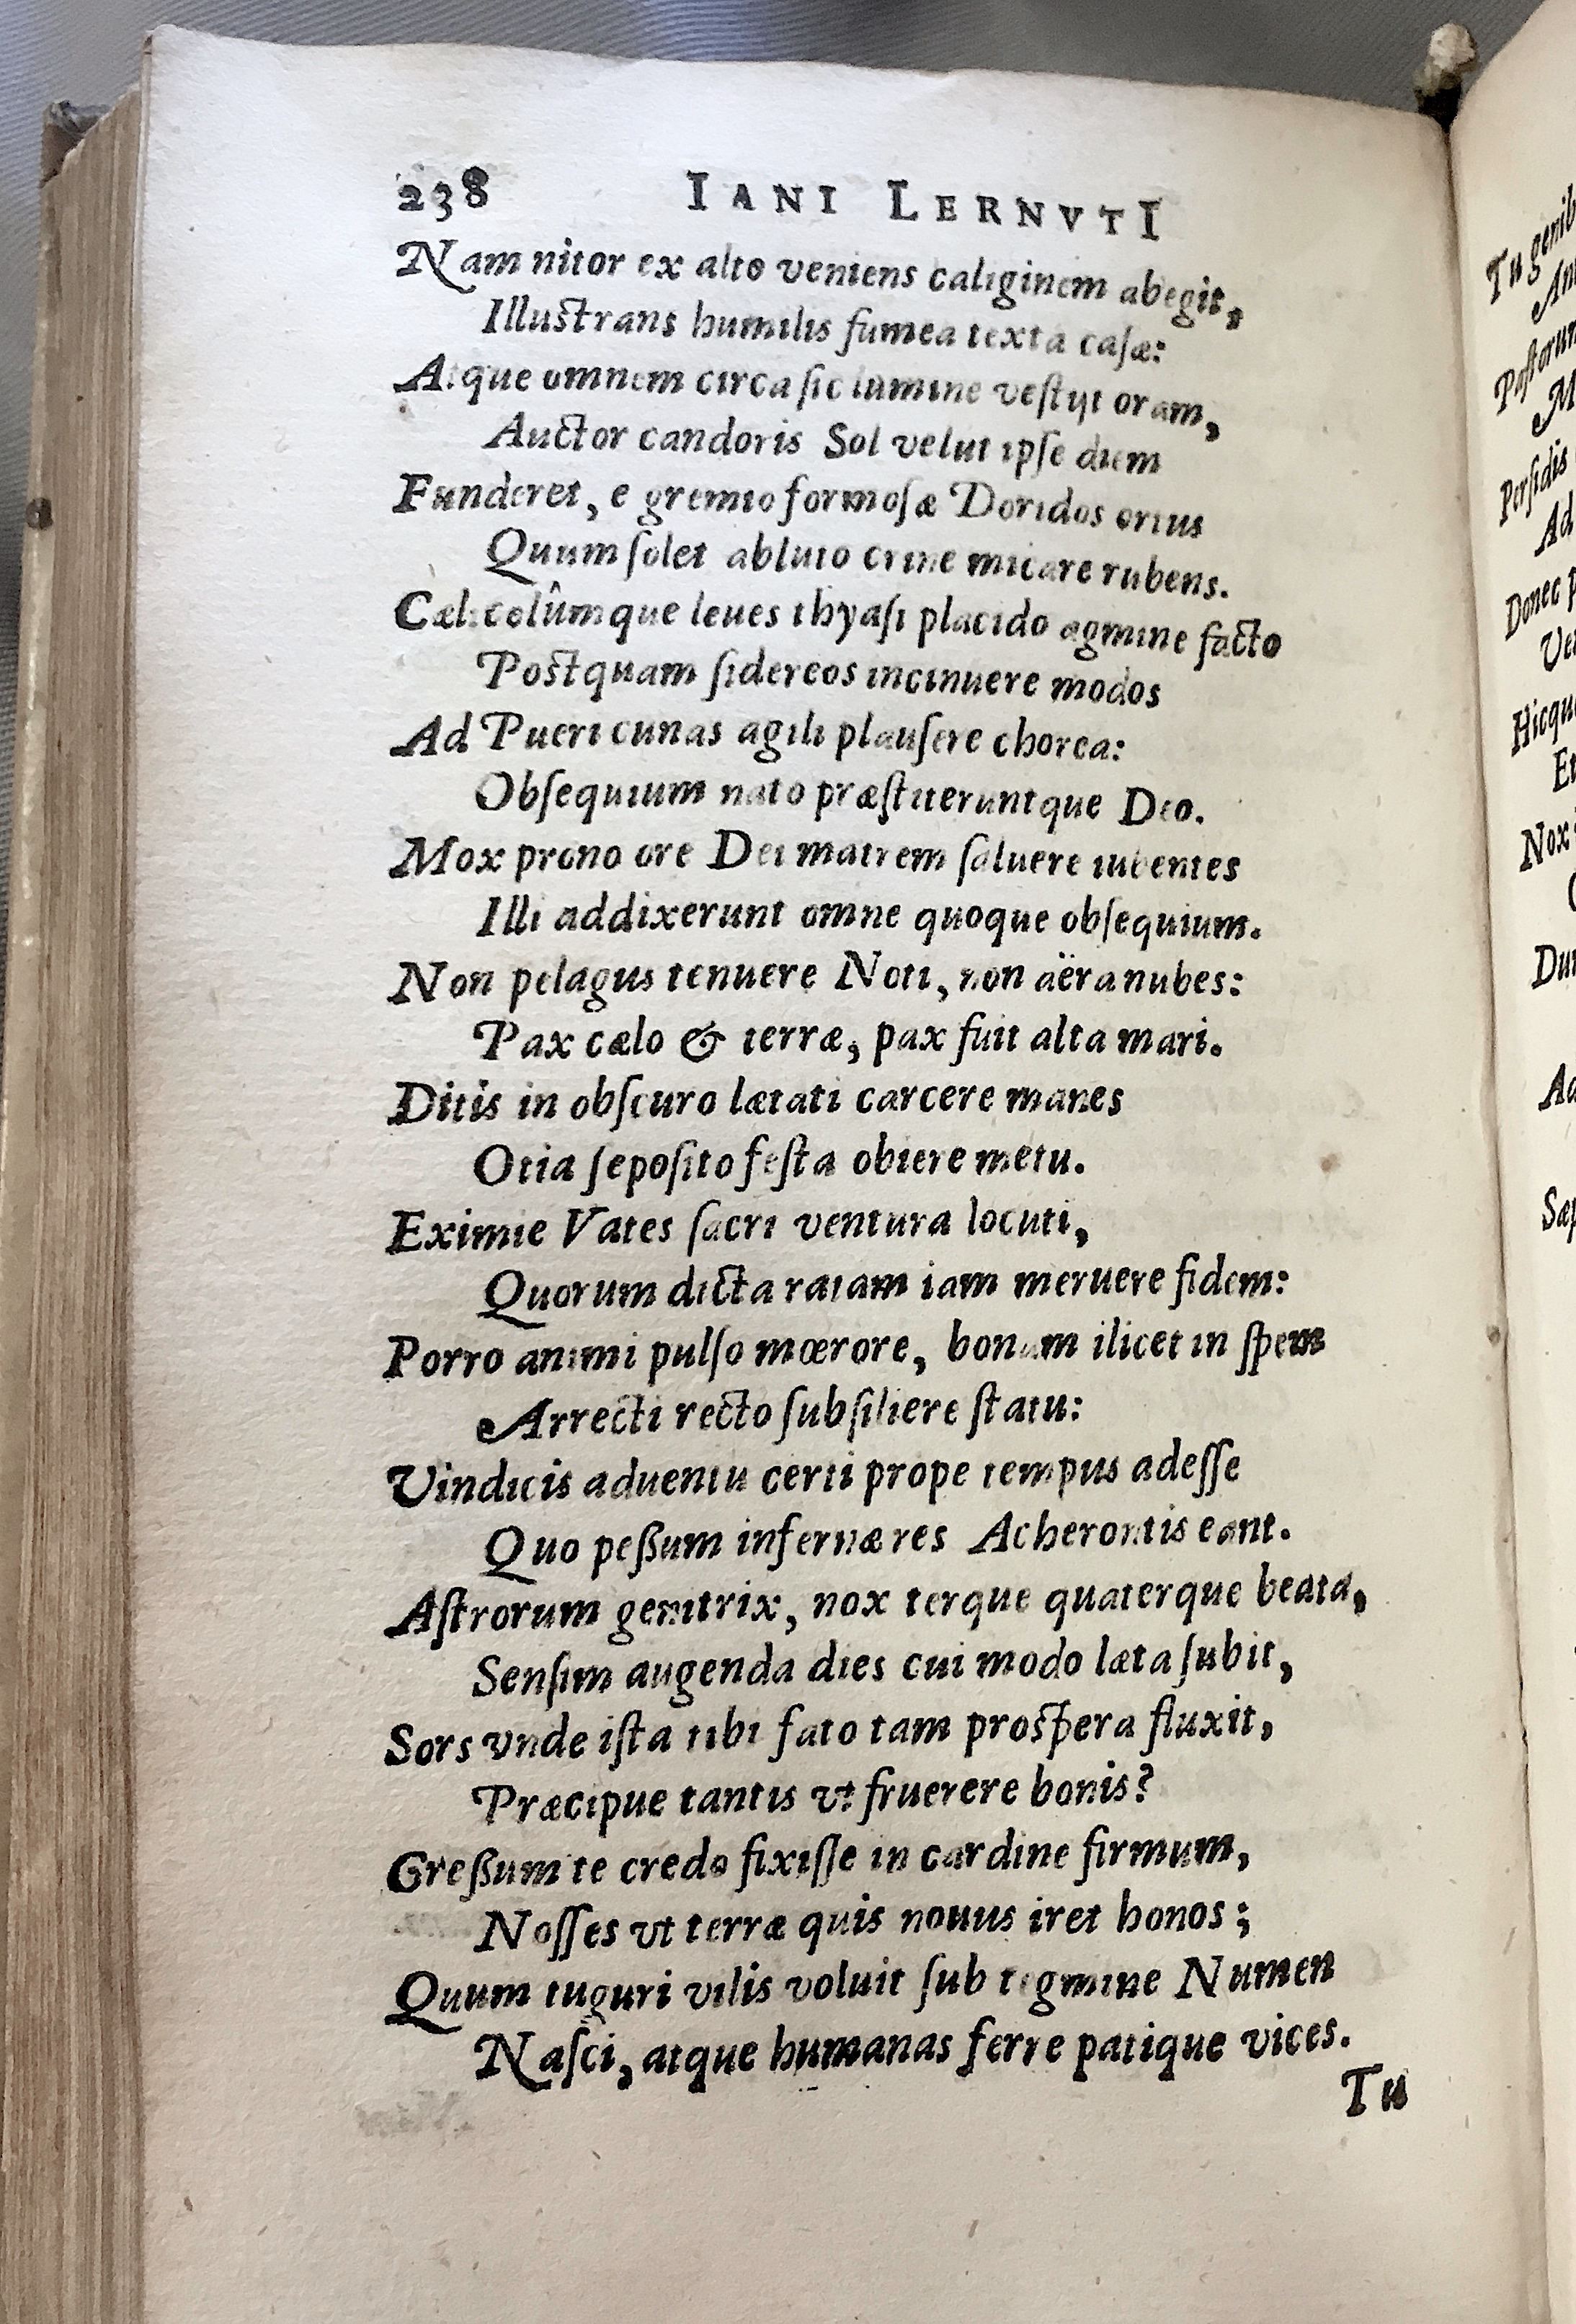 238 IANI LERNVTI
Nam nitor ex alto veniens caliginem abegit,
Illustrans humilis fumea texta casæ:
Atque omnem circa sic lumine vestijt oram,
Auctor candoris Sol velut ipse diem
Funderet, e gremio formosæ Doridos ortus
Quum solet abluto crine micare rubens.
Cælicolûmque leues thyasi placido agmine facto
Postquam sidereos incinuere modos
Ad Pueri cunas agili plausere chorea:
Obsequium nato præstiteruntque Deo.
Mox prono ore Dei matrem saluere iubentes
Illi addixerunt omne quoque obsequium.
Non pelagus tenuere Noti, non aëra nubes:
Pax cælo & terræ, pax fuit alta mari.
Ditis in obscuro lætati carcere manes
Otia seposito festa obiere metu.
Eximie Vates sacri ventura locuti,
Quorum dicta ratam iam meruere fidem:
Porro animi pulso mœrore, bonam ilicet in spem
Arrecti recto subsiliere statu:
Vindicis aduentu certi prope tempus adesse
Quo peßum infernæ res Acherontis eant.
Astrorum genitrix, nox terque quaterque beata,
Sensim augenda dies cui modo læta subit,
Sors vnde ista tibi fato tam prospera fluxit,
Præcipue tantis vt fruerere bonis?
Greßum te credo fixisse in cardine firmum,
Nosses vt terræ quis nouus iret honos;
Quum tuguri vilis voluit sub tegmine Numen
Nasci, atque humanas ferre patique vices.
Tu
Tu genib
Pastorum
M
Persidis
Ad
Donec p
Hicque
Et
Nox
Sæp